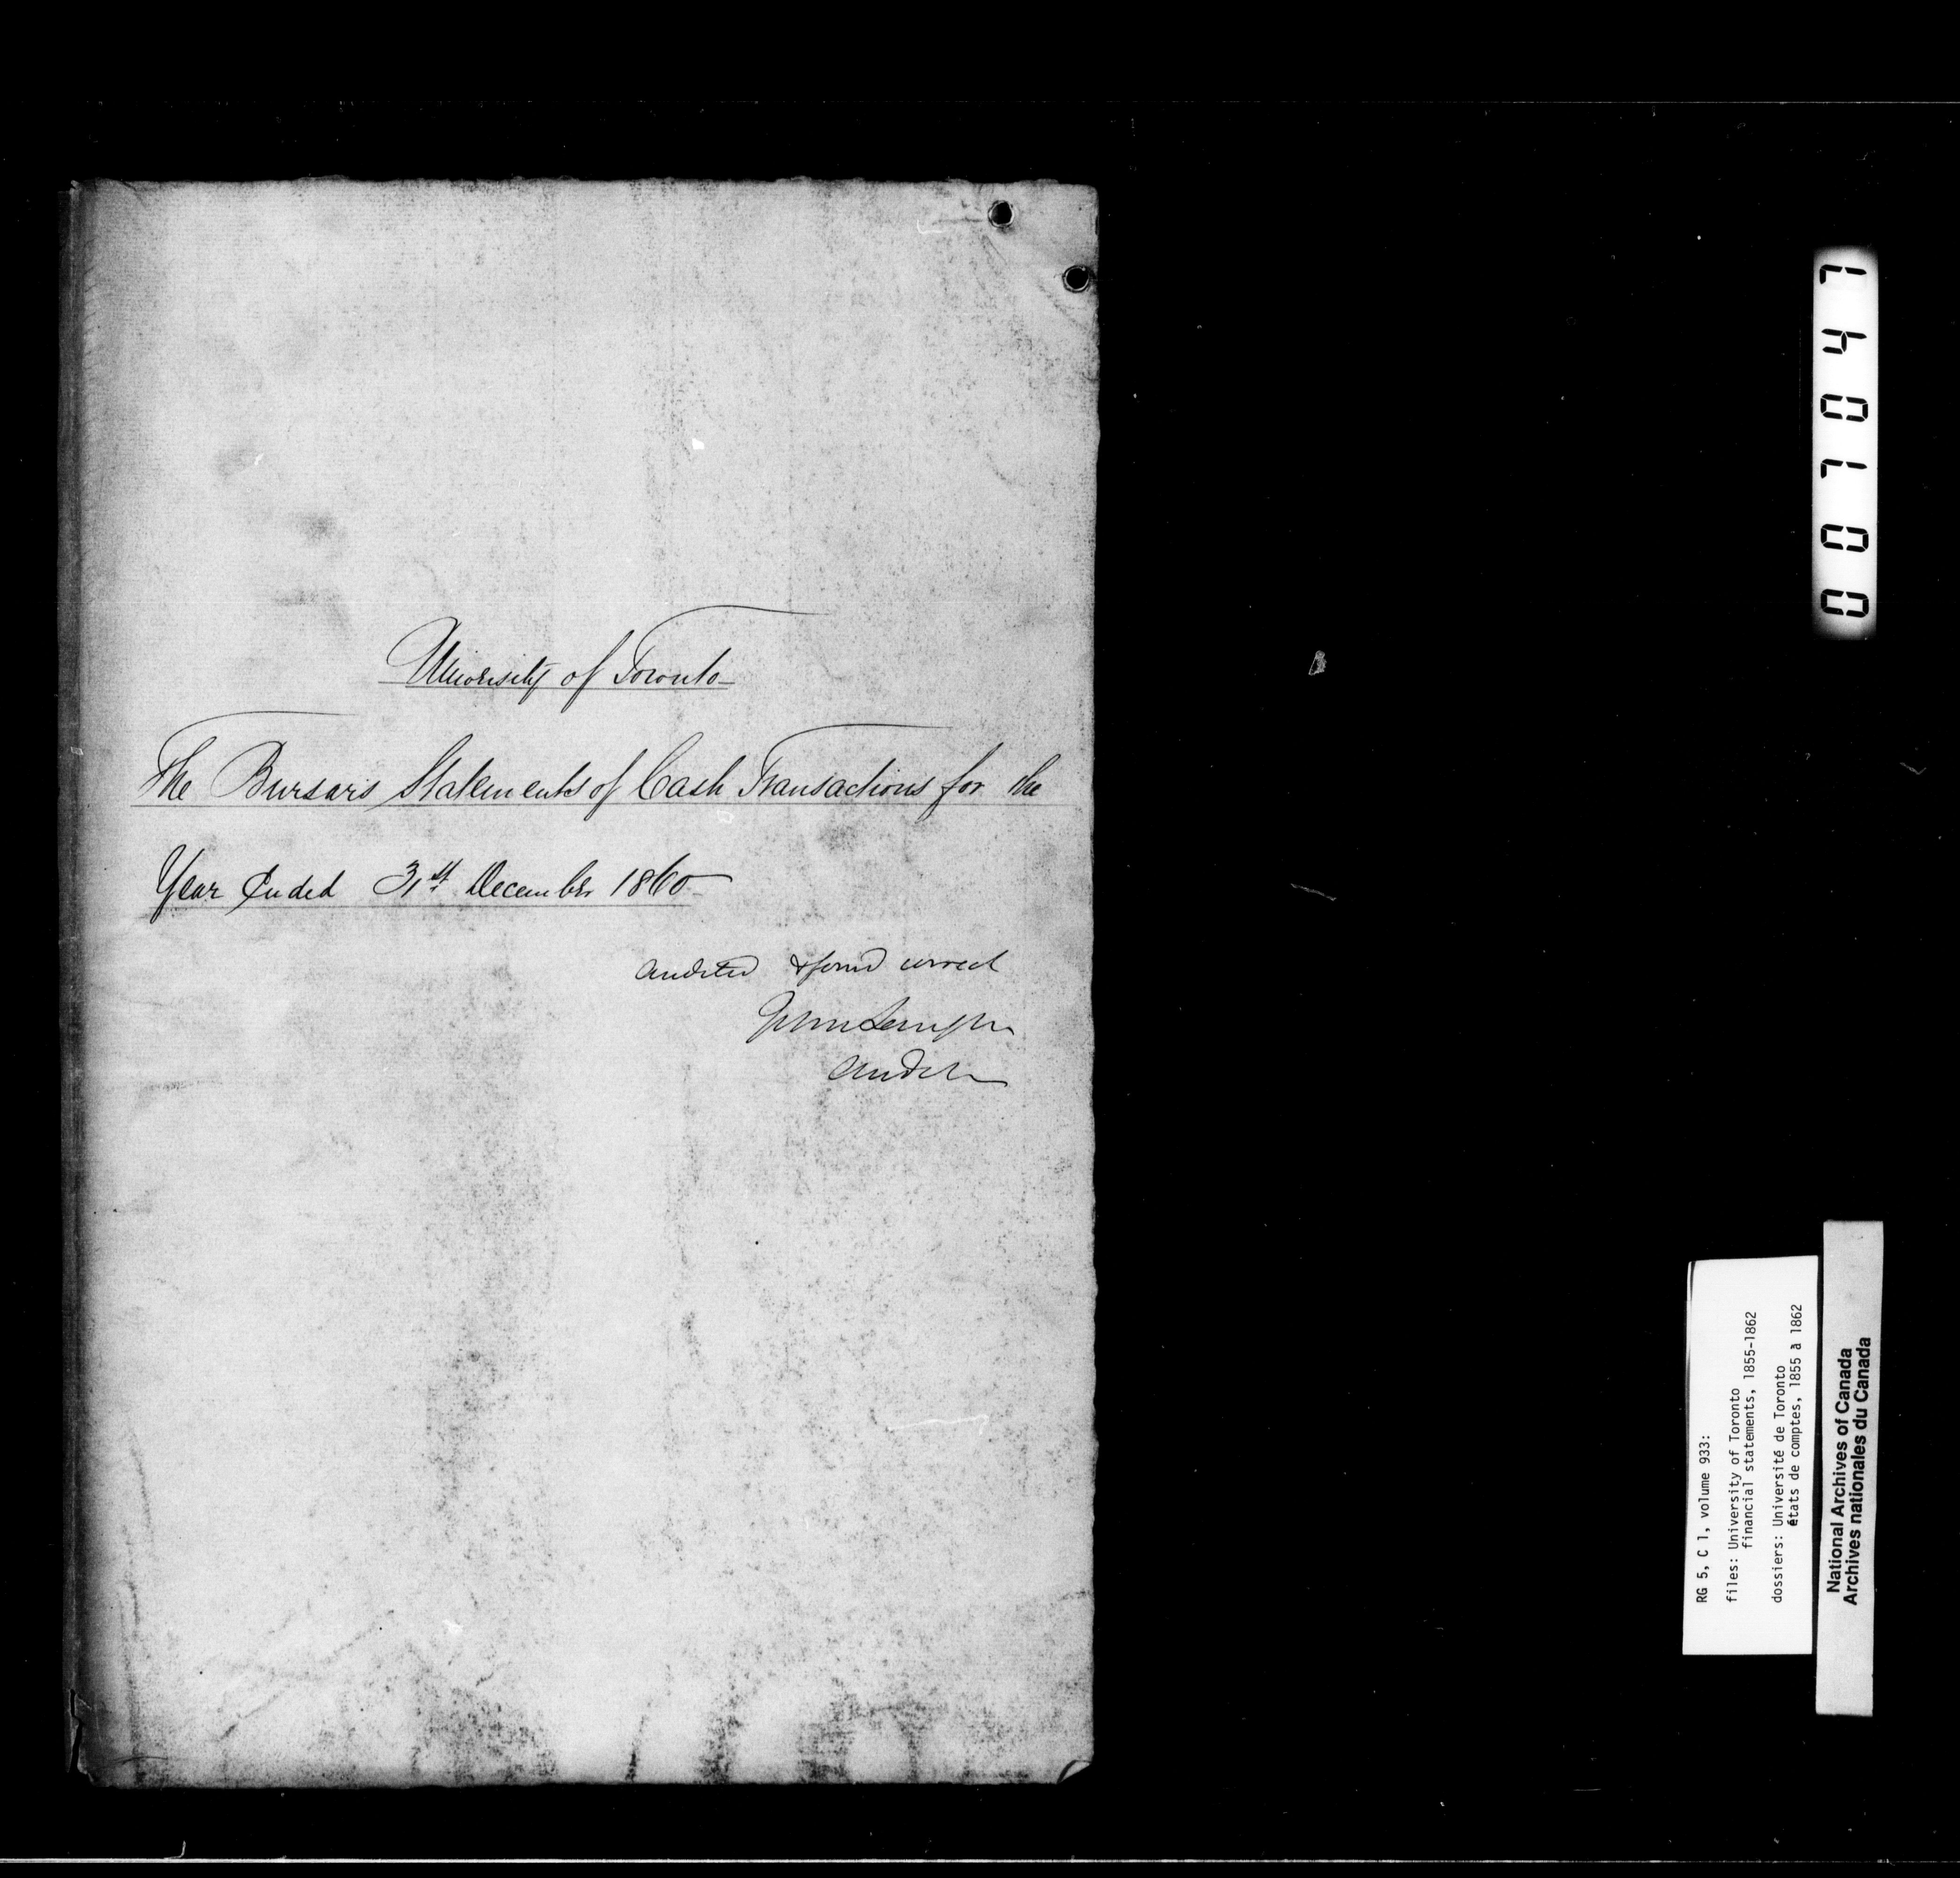 University of Toronto
The Bursar's Statements of Cash Transactions for the
Year Ended 31st December 1860
Audited & found correct
John Langton
Auditor
007047
RG 5, C 1, volume 933:
files: University of Toronto
financial statements, 1855-1862
dossiers: Université de Toronto
états de comptes, 1855 à 1862
National Archives of Canada
Archives nationales du Canada